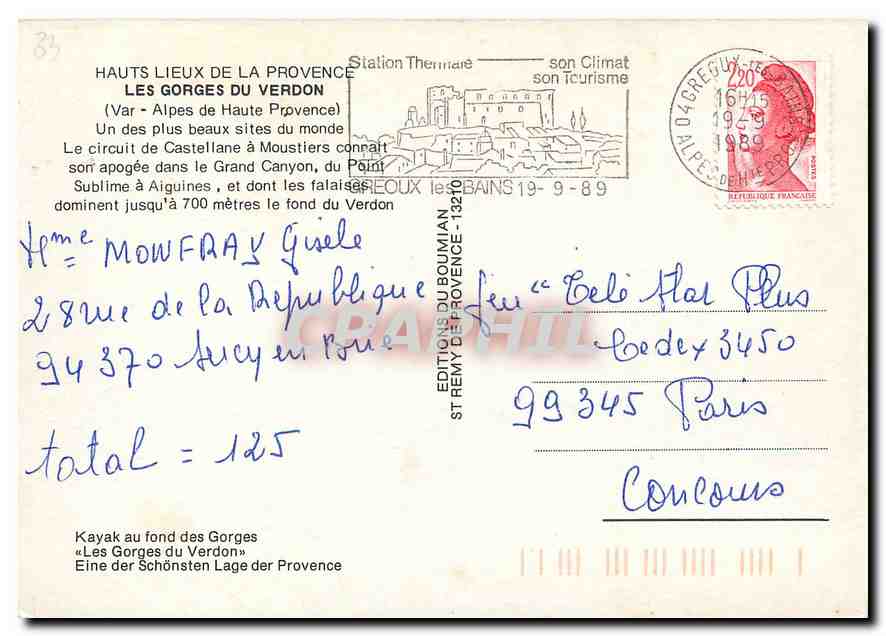 83
HAUTS LIEUX DE LA PROVENCE
LES GORGES DU VERDON
(Var - Alpes de Haute Provence)
Un des plus beaux sites du monde
Le circuit de Castellane à Moustiers connait
son apogée dans le Grand Canyon, du Point
Sublime à Aiguines, et dont les falaises
dominent jusqu'à 700 mètres le fond du Verdon
Station Thermale son Climat
son Tourisme
GREOUX les BAINS 19-9-89
04 GREOUX-LES-BAINS
16H15
19-9
1989
ALPES DE HTE PROV.
2,20
POSTES
REPUBLIQUE FRANÇAISE
Mme MONFRAY Gisèle
28 rue de la République
94370 Sucy en Brie
total = 125
EDITIONS DU BOUMIAN
ST REMY DE PROVENCE - 13210
Jeu " Télé Star Plus
Cedex 3450
99345 Paris
Concours
CPAPHIL
Kayak au fond des Gorges
«Les Gorges du Verdon»
Eine der Schönsten Lage der Provence